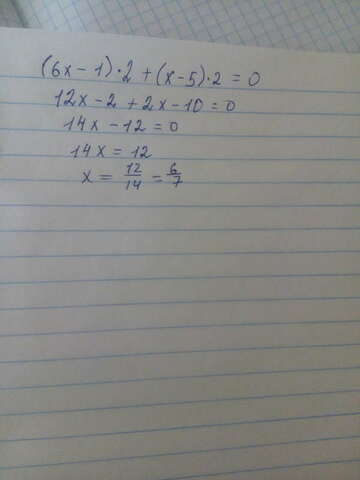 (6x − 1) · 2 + (x − 5) · 2 = 0
12x − 2 + 2x − 10 = 0
14x − 12 = 0
14x = 12
x = 12/14 = 6/7